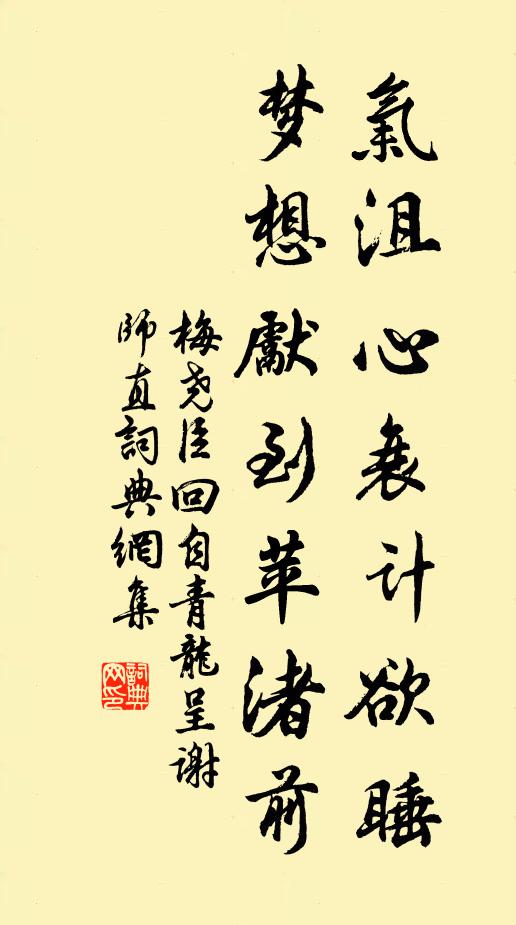 氣沮心衰计欲睡
梦想獻到苹渚前
梅尧臣回自青龍呈谢
師直詞典網集
詞典
网印